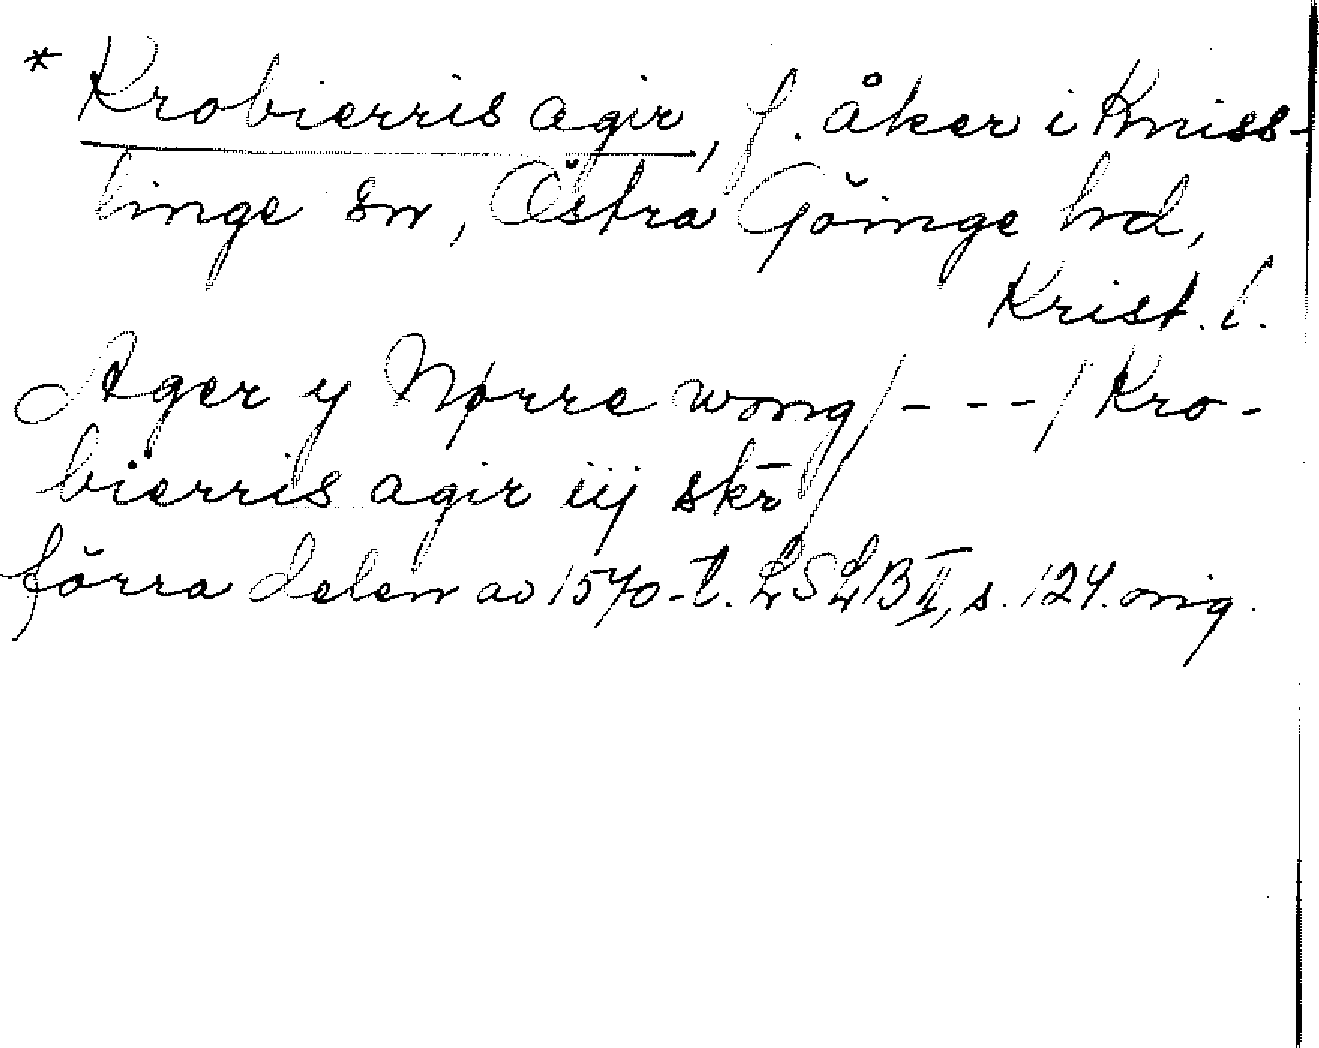 * Krobierris agir, f. åker i Kniss-
linge sn, Östra Göinge hd,
Krist. l.
Ager y Nørre wong/---/Kro-
bierris agir iij skr̄/
förra delen av 1570-t. LSLB II, s. 124. orig.